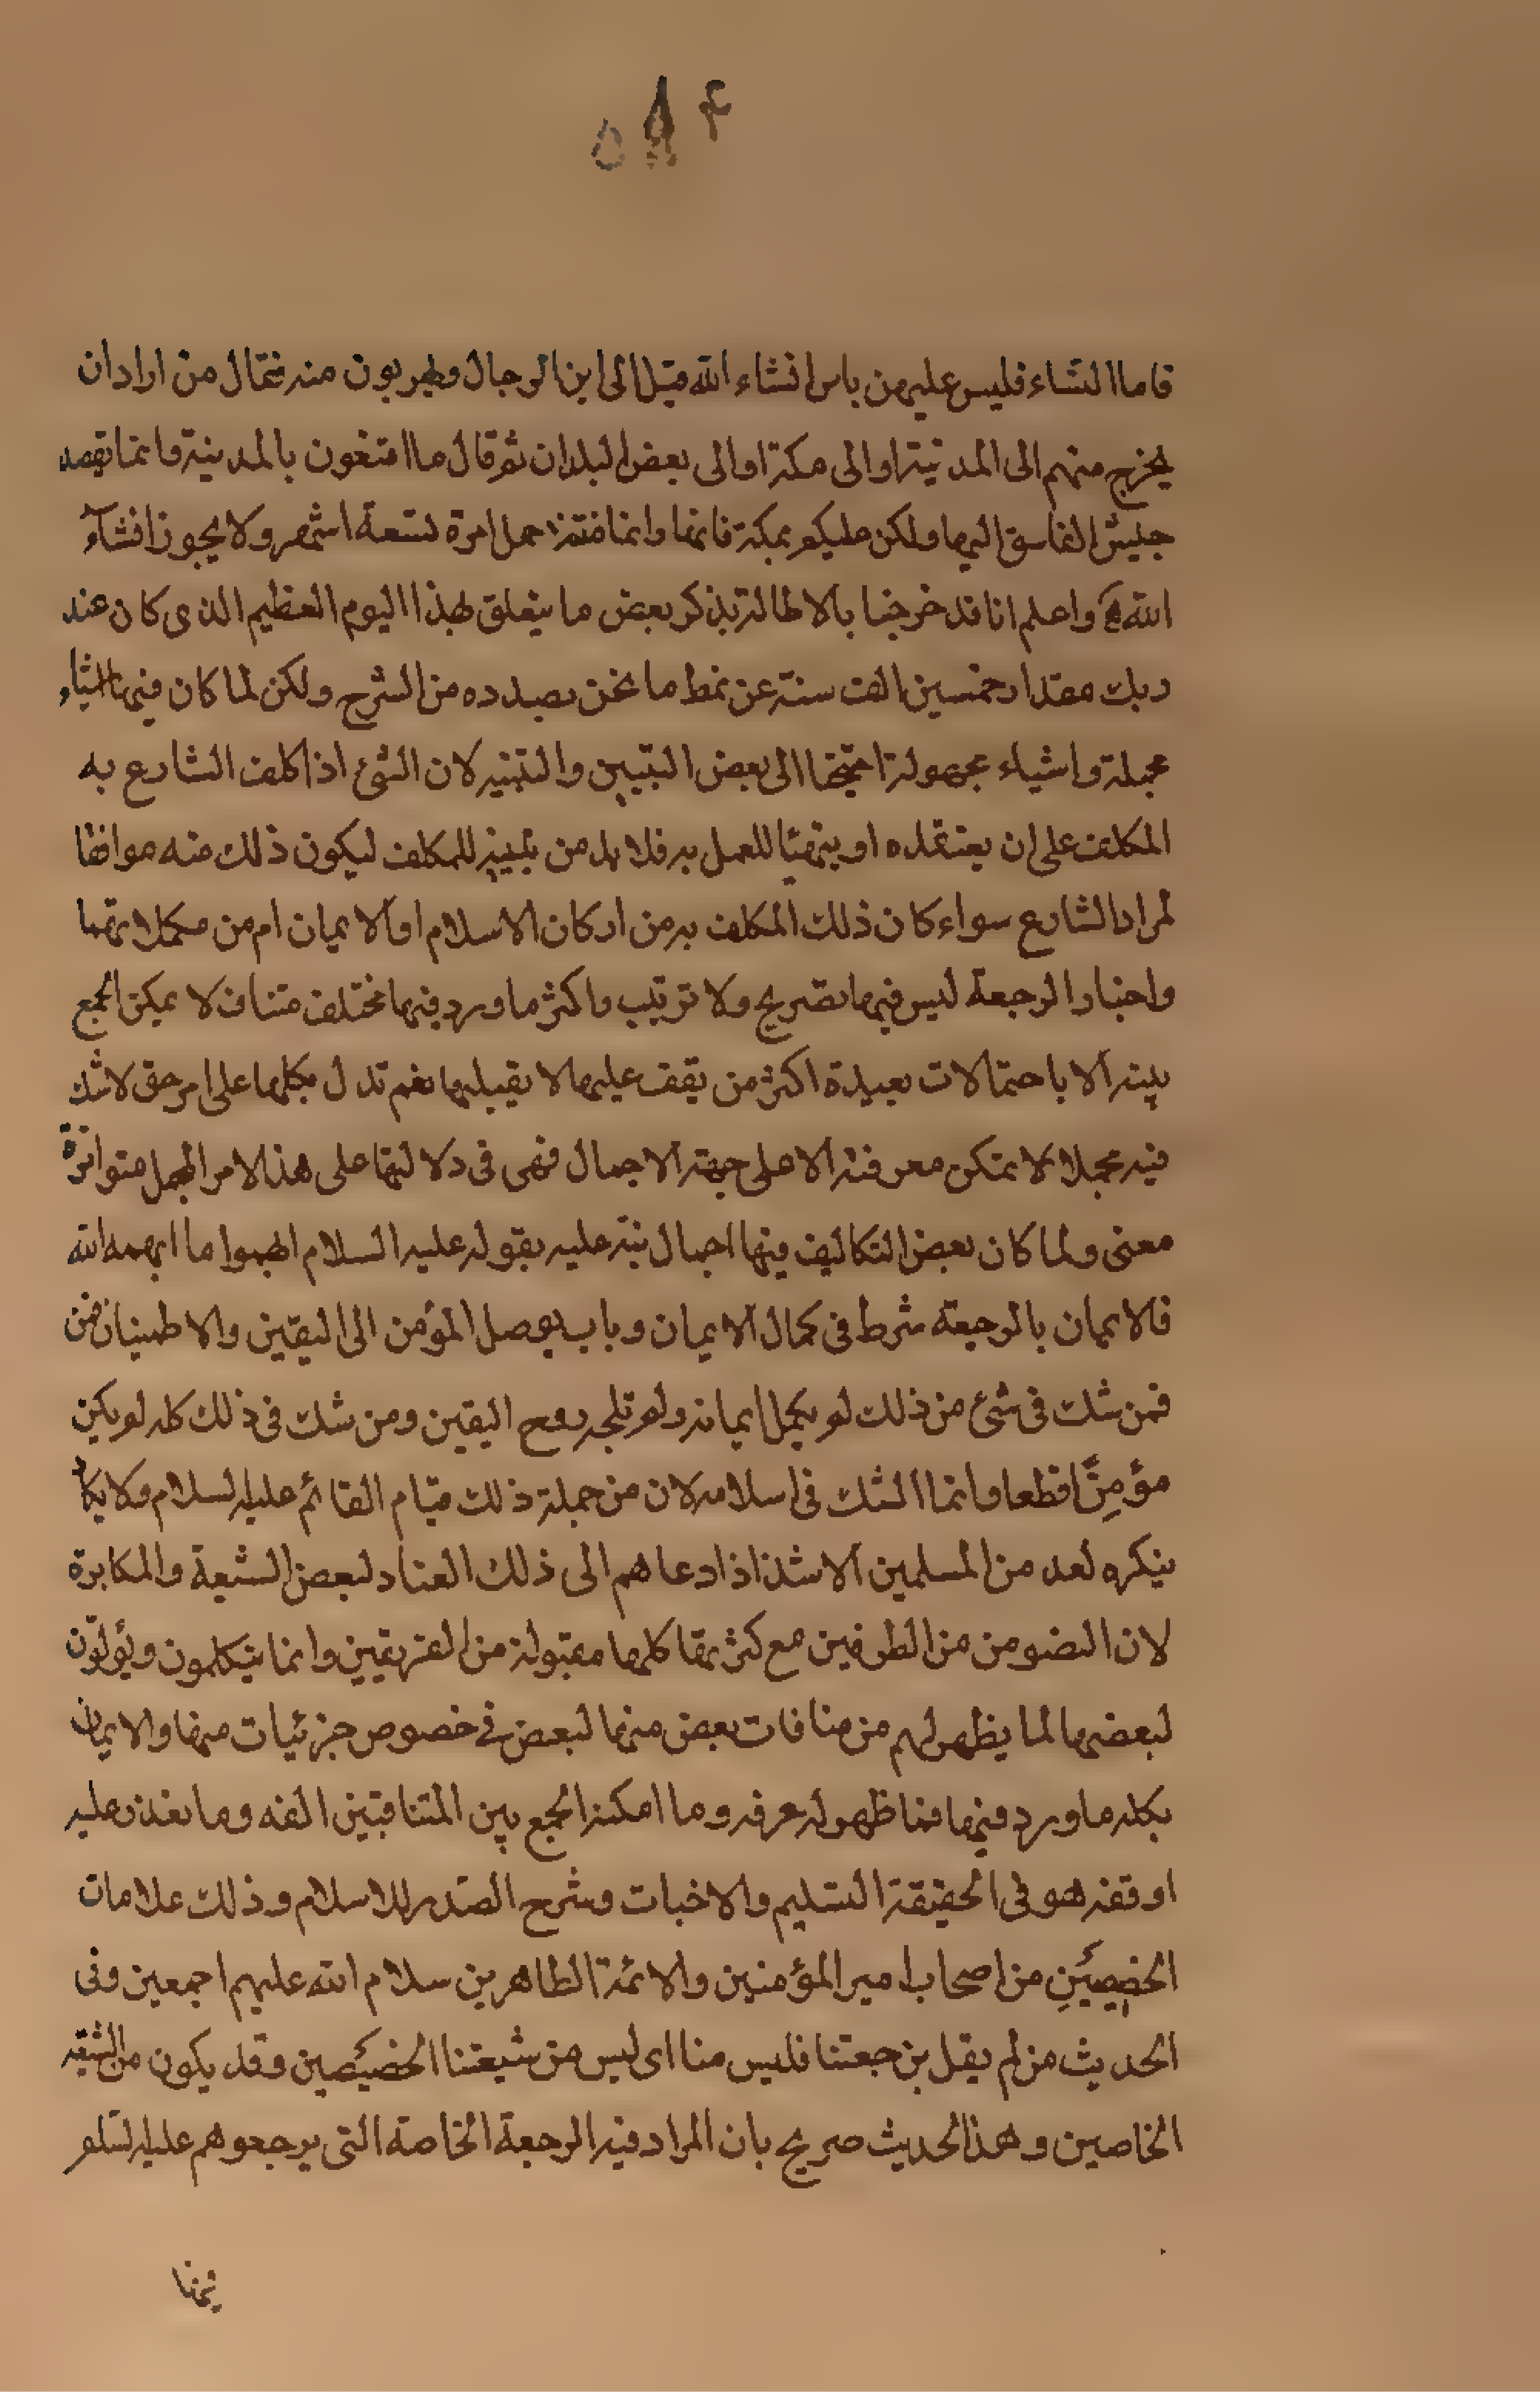 ۵۸۴
فاما النساء فليس عليهن باس انشاء الله قيل الى اين الرجال ويهربون منه فقال من اراد ان
يخرج منهم الى المدينة او الى مكة او الى بعض البلدان ثم قال ما تصنعون بالمدينة وانما تقصد
جيش الفاسق اليها ولكن عليكم بمكة فانها وانما فتنته حمل امرة لتسعة اشهر ولا يجوز انشاء
الله واعلم انا قد خرجنا بالاطالة بذكر بعض ما يتعلق بهذا اليوم العظيم الذى كان عند
ربك مقدار خمسين الف سنة عن نمط ما نحن بصدده من الشرح ولكن لما كان فيها اشياء
مجملة واشياء مجهولة احتجنا الى بعض التبيين والتنبيه لان الشئ اذا كلف الشارع به
المكلف على ان يعتقده او يتهيّا للعمل به فلا بد من تبيينه للمكلف ليكون ذلك منه موافقا
لمراد الشارع سواء كان ذلك المكلف به من اركان الاسلام او الايمان ام من مكملاتهما
واخبار الرجعة ليس فيها تصريح ولا ترتيب واكثر ما ورد فيها مختلف متناف لا يمكن الجمع
بينه الا باحتمالات بعيدة اكثر من يقف عليها لا يقبلها نعم تدل بكلها على امر حق لا شك
فيه مجملا لا يمكن معرفته الا على جهة الاجمال فهى فى دلالتها على هذا الامر المجمل متواترة
معنى ولما كان بعض التكاليف فيها اجمال نبّه عليه بقوله عليه السلام ابهموا ما ابهمه الله
فالايمان بالرجعة شرط فى كمال الايمان وباب يوصل المؤمن الى اليقين والاطمينان
فمن شك فى شئ من ذلك لم يكمل ايمانه ولم تلجه روح اليقين ومن شك فى ذلك كله لم يكن
مؤمنًا قطعا وانما الشك فى اسلامه لان من جملة ذلك قيام القائم عليه السلام ولا يكاد
ينكره احد من المسلمين الا شذاذ ادعاهم الى ذلك العناد لبعض الشيعة والمكابرة
لان النصوص من الطرفين مع كثرتها كلها مقبولة من الفريقين وانما يتكلمون ويؤولون
لبعضها لما يظهر لهم من منافات بعض منها لبعض فى خصوص جزئيات منها والايمان
بكله ما ورد فيها فما ظهر له عرفه وما امكنه الجمع بين المتنافيين الفه وما تعذر عليه
اوقفه هو فى الحقيقة التسليم والاخبات وشرح الصّدر للاسلام وذلك علامات
الخصيصين من اصحاب امير المؤمنين والائمة الطاهرين سلام الله عليهم اجمعين وفى
الحديث من لم يقل برجعتنا فليس منا اى ليس من شيعتنا الخصيصين وقد يكون من الشيعة
الخاصين وهذا الحديث صريح بان المراد فيه الرجعة الخاصة التى يرجعوهم عليه السلم